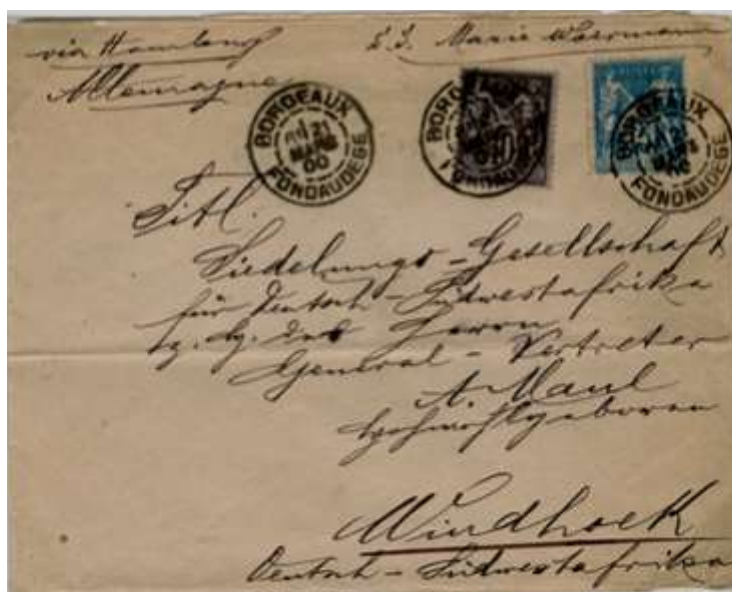 via Hamburg
S. S. Marie Woermann
Allemagne
BORDEAUX
21
MARS
00
FONDAUDEGE
BORDEAUX
FONDAUDEGE
BORDEAUX
21
MARS
00
FONDAUDEGE
Titl.
Siedelungs-Gesellschaft
für Deutsch-Südwestafrika
Herrn
General-Vertreter
A. Maul
Hochwohlgeboren
Windhoek
Deutsch-Südwestafrika